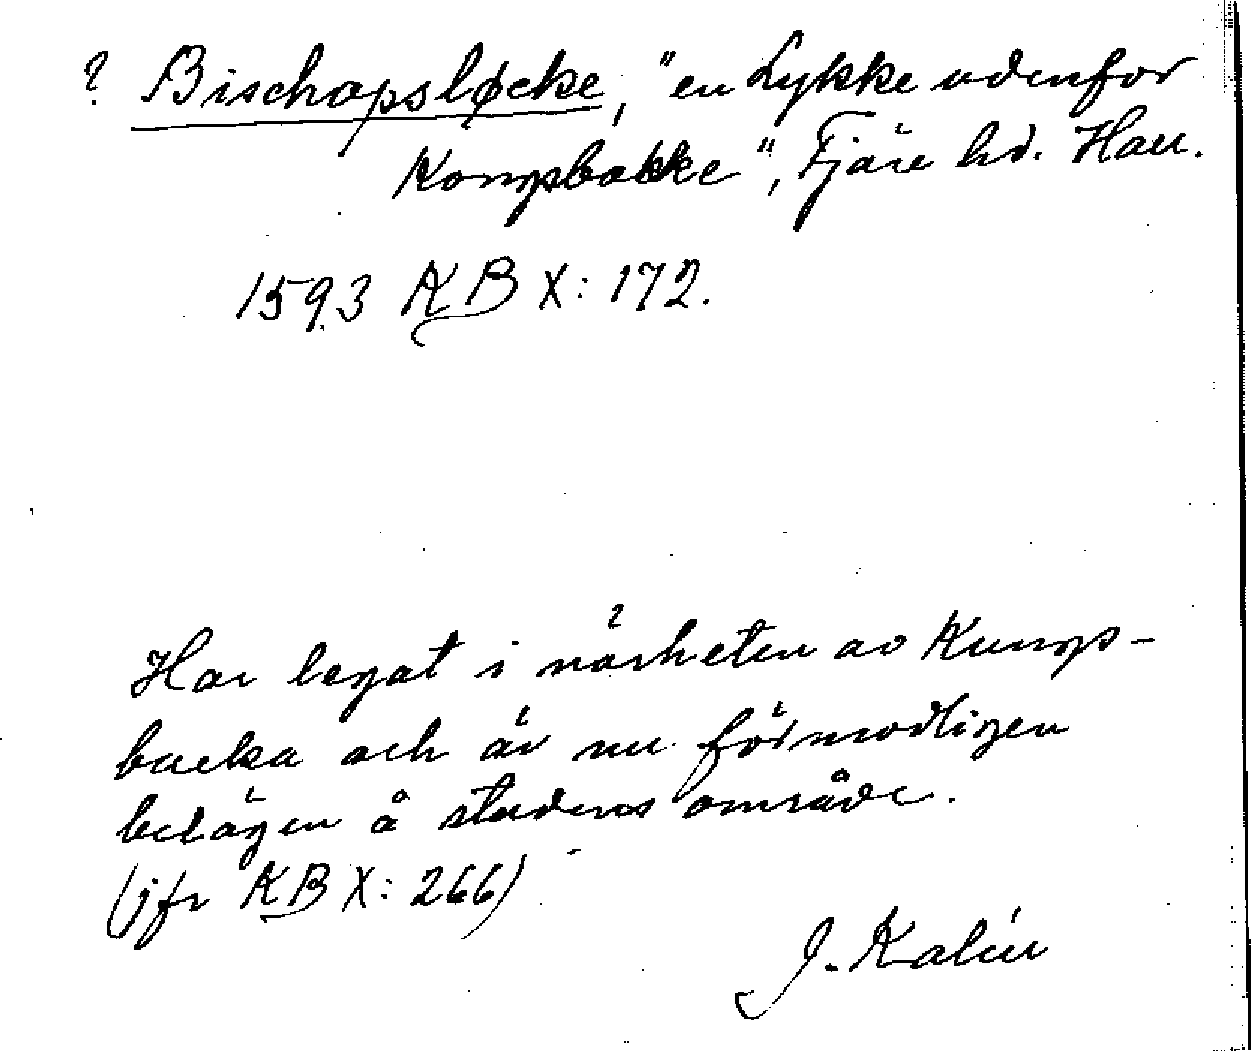 ? Bischopsløcke, "en Lykke udenfor
Kongsbakke", Fjäre hd. Hall.
1593 KB X: 172.
Har legat i närheten av Kungs-
backa och är nu förmodligen
belägen å stadens område.
(jfr KB X: 266)
J. Kalén